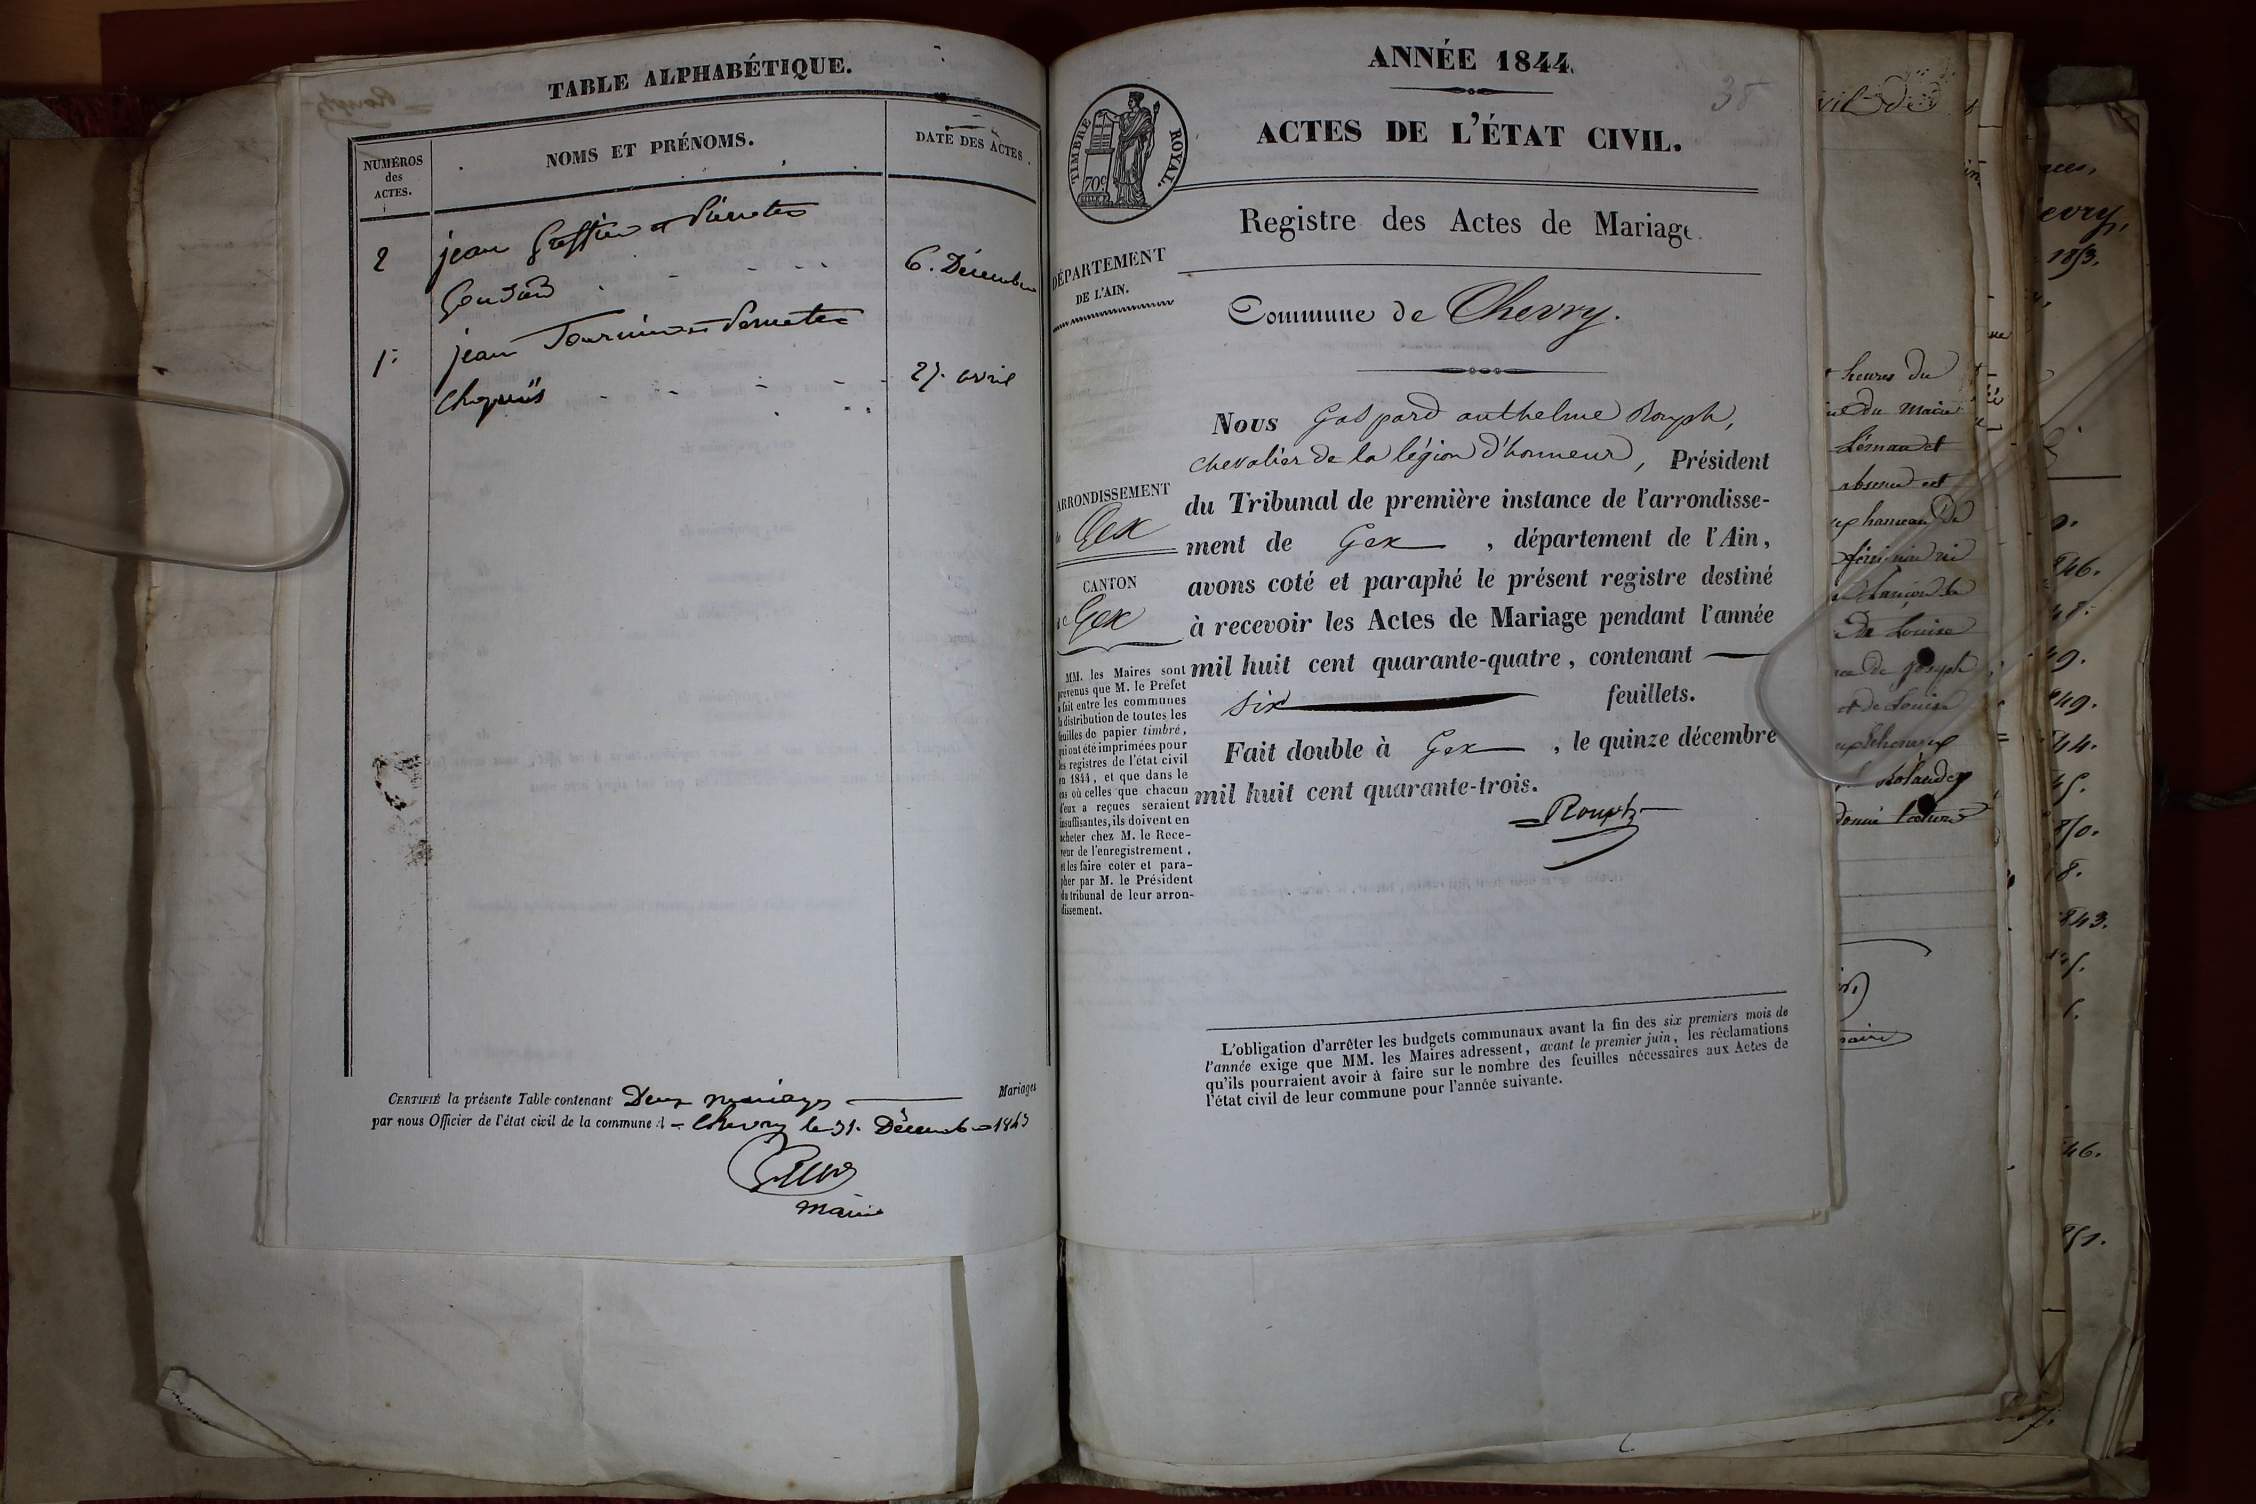 TABLE ALPHABÉTIQUE.
NUMÉROS
des
ACTES.
NOMS ET PRÉNOMS.
DATE DES ACTES.
2 jean et Pierrette
6. Décembre
1. jean Tournier et Pernette
Chapuis
27. avril
CERTIFIÉ la présente Table contenant Deux mariages Mariages
par nous Officier de l'état civil de la commune d Chevry le 31. Décembre 1843
maire
ANNÉE 1844.
38
ACTES DE L'ÉTAT CIVIL.
TIMBRE ROYAL.
70 c
Registre des Actes de Mariage.
DÉPARTEMENT
DE L'AIN.
Commune de Chevry.
ARRONDISSEMENT
de Gex
CANTON
de Gex
MM. les Maires sont
prévenus que M. le Préfet
a fait entre les communes
la distribution de toutes les
feuilles de papier timbré,
qui ont été imprimées pour
les registres de l'état civil
en 1844, et que dans le
cas où celles que chacun
d'eux a reçues seraient
insuffisantes, ils doivent en
acheter chez M. le Rece-
veur de l'enregistrement,
et les faire coter et para-
pher par M. le Président
du tribunal de leur arron-
dissement.
Nous Gaspard anthelme Rouph,
chevalier de la légion d'honneur, Président
du Tribunal de première instance de l'arrondisse-
ment de Gex, département de l'Ain,
avons coté et paraphé le présent registre destiné
à recevoir les Actes de Mariage pendant l'année
mil huit cent quarante-quatre, contenant
six feuillets.
Fait double à Gex, le quinze décembre
mil huit cent quarante-trois.
Rouph
L'obligation d'arrêter les budgets communaux avant la fin des six premiers mois de
l'année exige que MM. les Maires adressent, avant le premier juin, les réclamations
qu'ils pourraient avoir à faire sur le nombre des feuilles nécessaires aux Actes de
l'état civil de leur commune pour l'année suivante.
heures du
du Maire
de Louise
de Joseph
et de Louise
evry,
1853.
46.
49.
44.
843.
46.